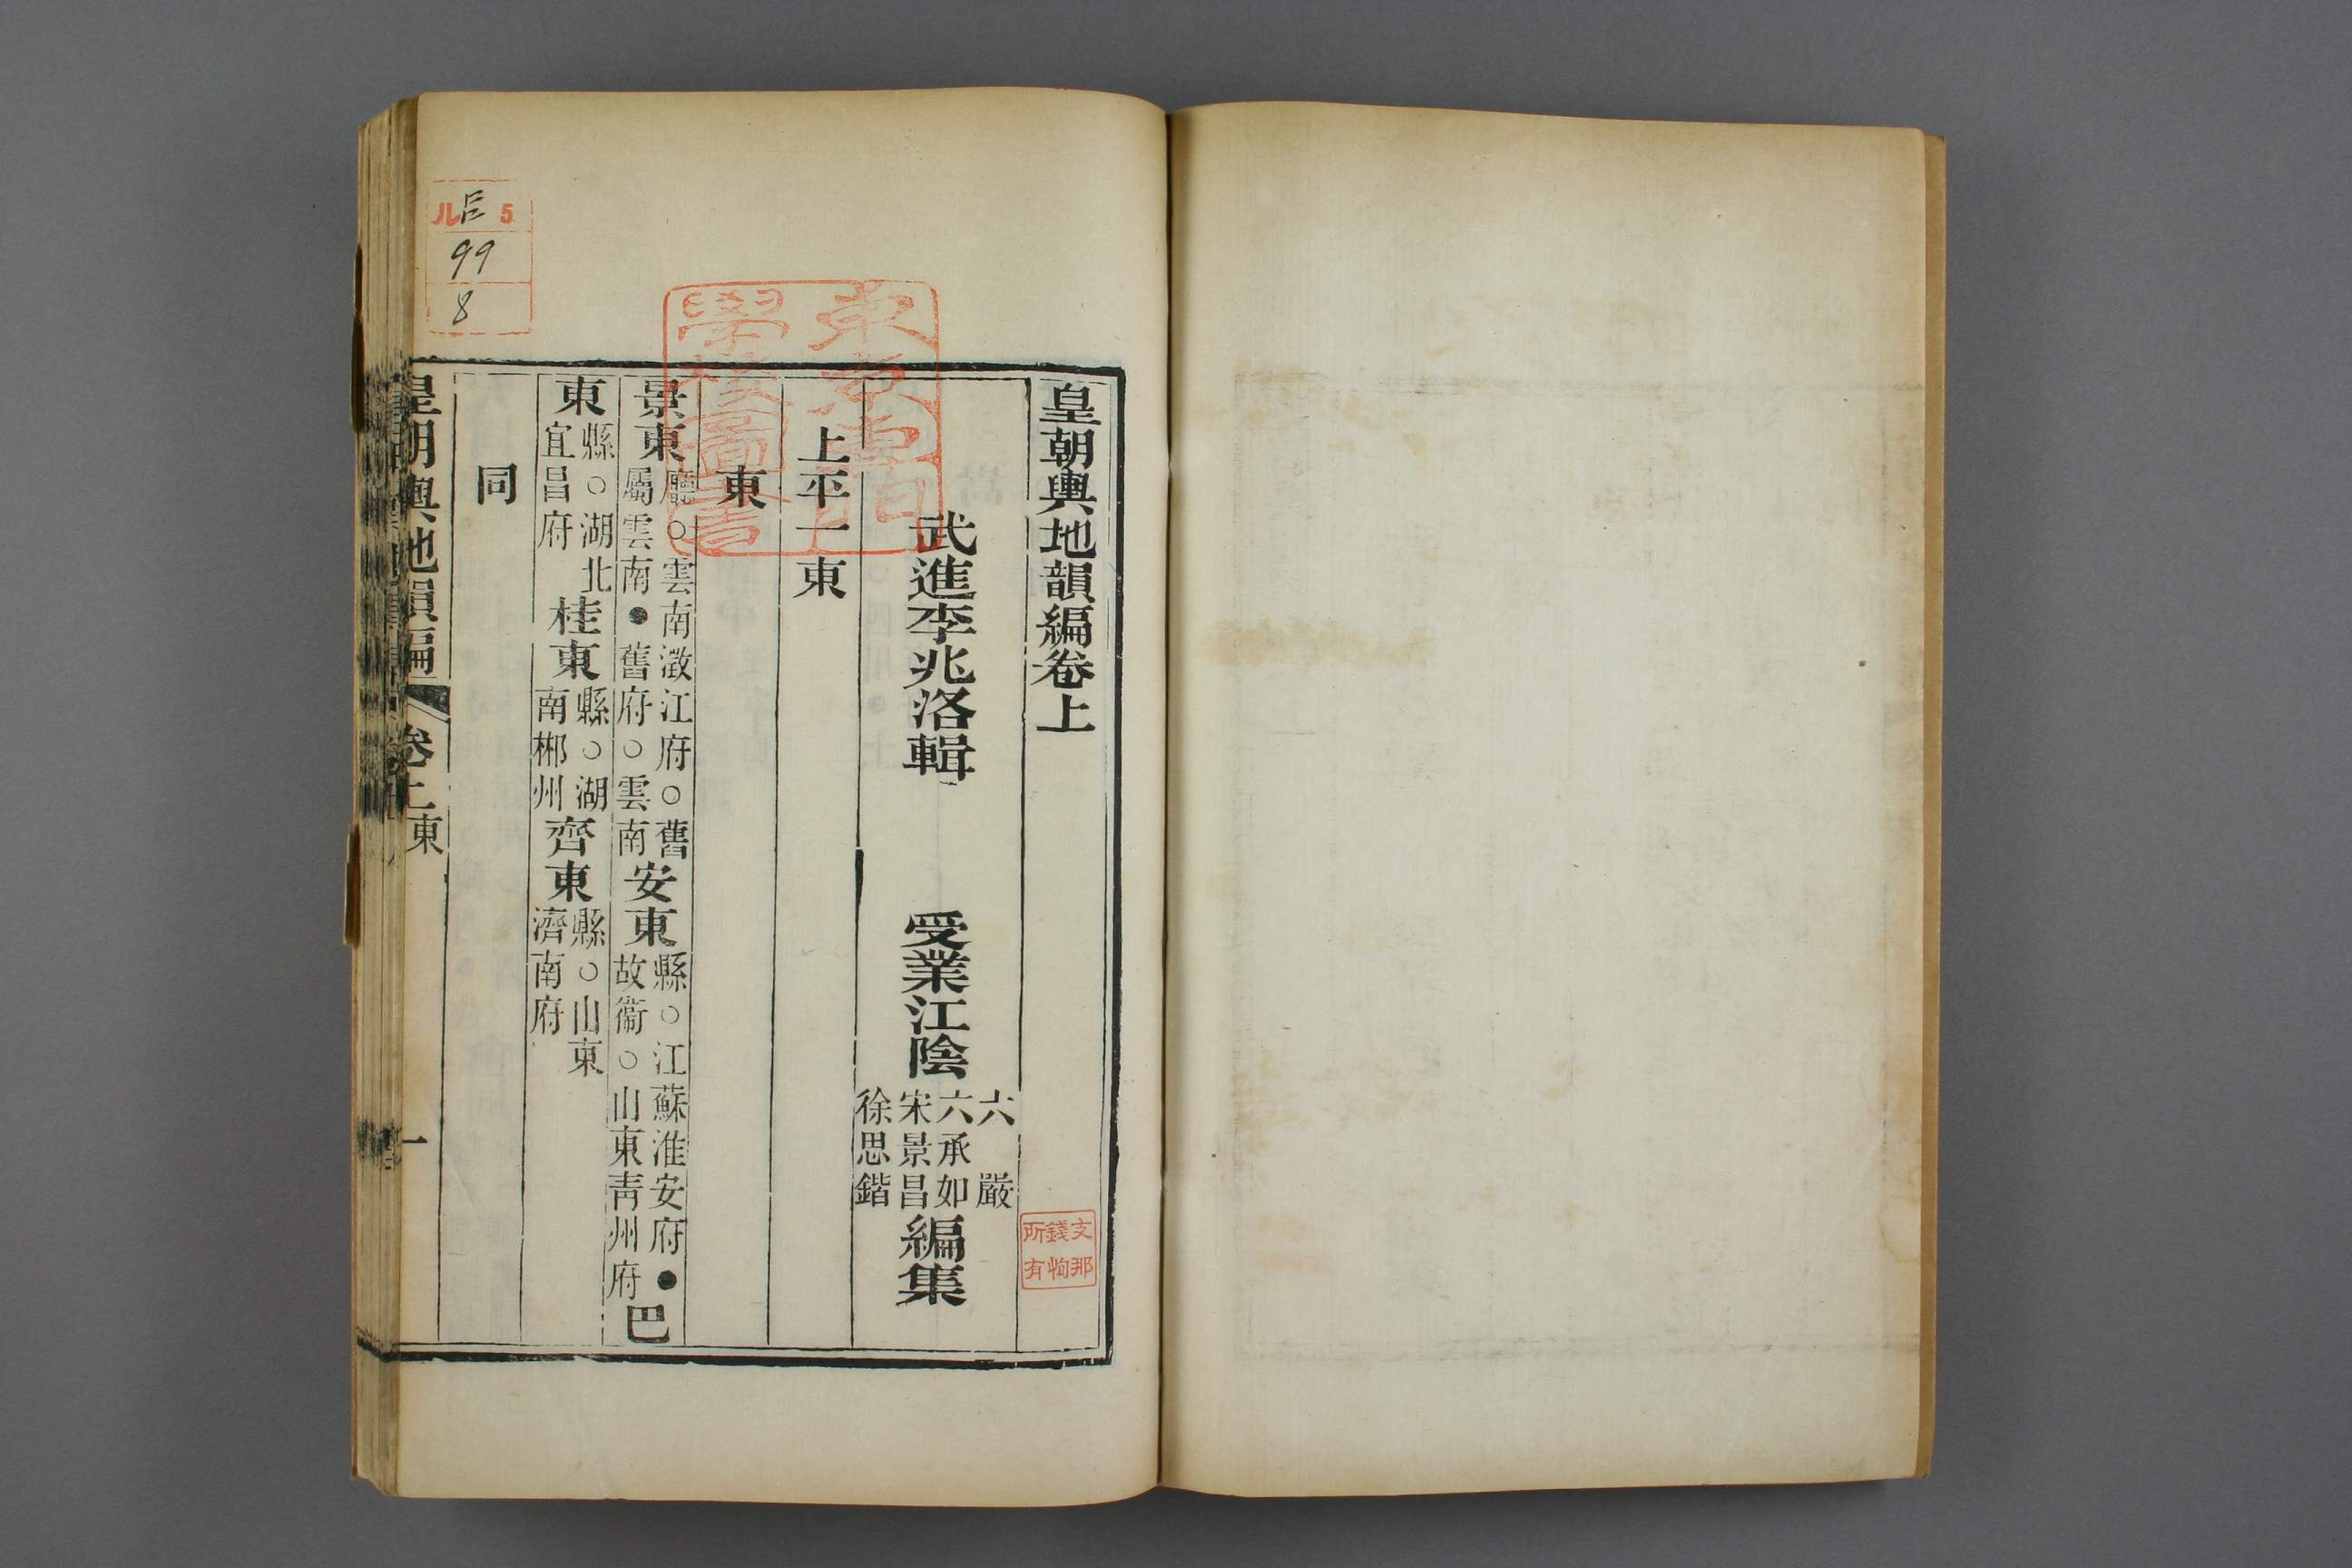 皇朝輿地韻編卷上
武進李兆洛輯　受業江陰
六　嚴
六承如
宋景昌
徐思鍇
編集
上平一東
東
景東
廳○雲南澂江府○舊
屬雲南●舊府○雲南
安東
縣○江蘇淮安府●
故衞○山東青州府
巴
東
縣○湖北
宜昌府
桂東
縣○湖
南郴州
齊東
縣○山東
濟南府
同
皇朝輿地韻編　卷上東　一
支那
錢恂
所有
東京專門
學校圖書
ル 5
99
8